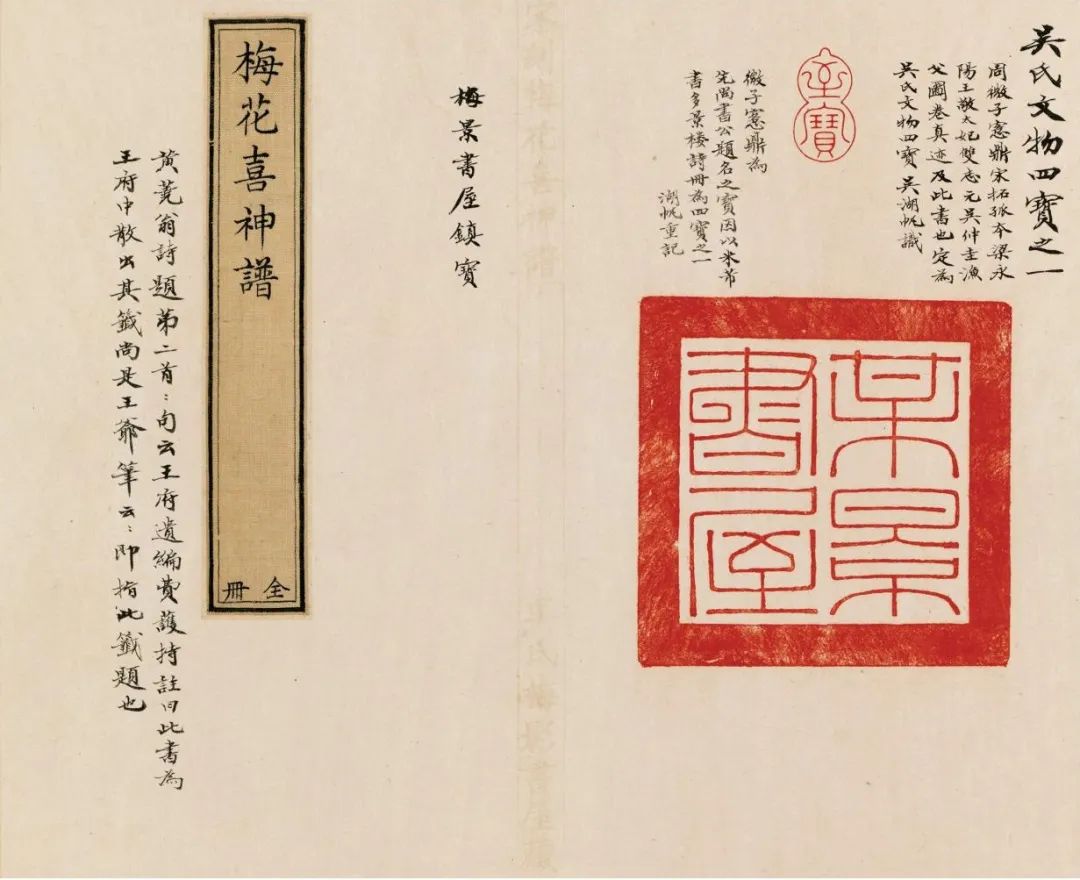 吳氏文物四寶之一
周微子愙鼎宋拓孤本梁永
陽王敬太妃雙志元吳仲圭漁
父圖卷真迹及此書也定為
吳氏文物四寶 吳湖帆識
至寶
微子愙鼎為
先尚書公題名之寶因以米芾
書多景樓詩冊為四寶之一
湖帆重記
某景
書屋
梅景書屋鎮寶
梅花喜神譜
全冊
黃蕘翁詩題第二首:句云王府遺編費護持註曰此書為
王府中散出其籤尚是王爺筆云:即指此籤題也